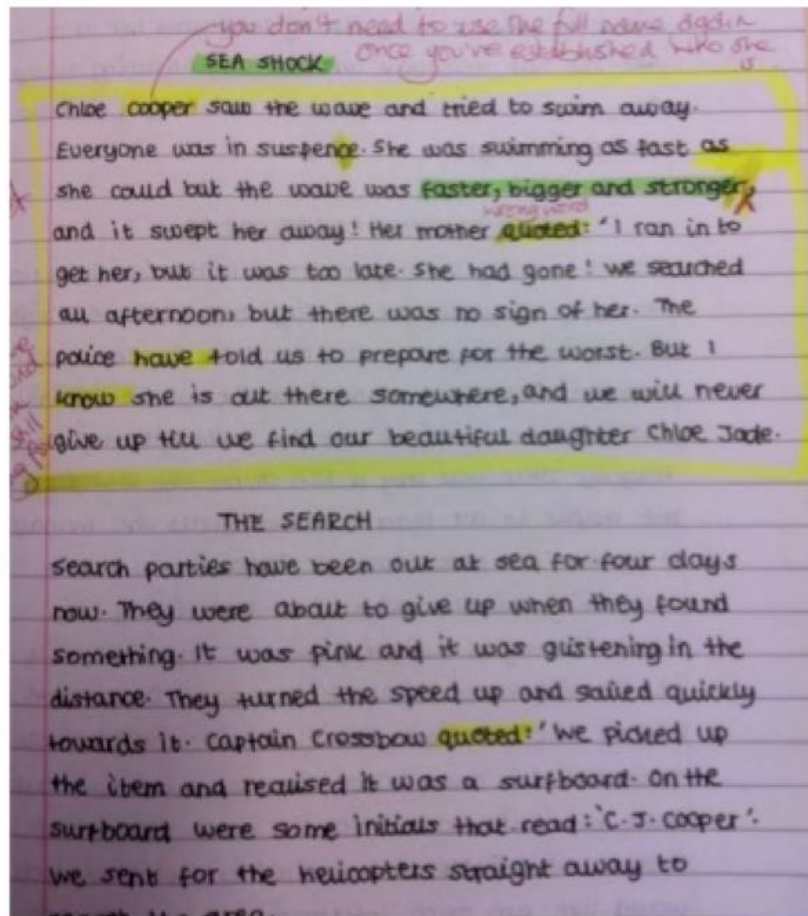 you don't need to use the full name again
once you've established who she
is
SEA SHOCK
Chloe cooper saw the wave and tried to swim away.
Everyone was in suspence. She was swimming as fast as
she could but the wave was faster, bigger and stronger,
wrong word
and it swept her away! Her mother quoted: 'I ran in to
get her, but it was too late. She had gone! we searched
all afternoon, but there was no sign of her. The
police have told us to prepare for the worst. But I
know she is out there somewhere, and we will never
give up till we find our beautiful daughter Chloe Jade.
THE SEARCH
Search parties have been out at sea for four days
now. They were about to give up when they found
something. It was pink and it was glistening in the
distance. They turned the speed up and sailed quickly
towards it. Captain Crossbow quoted: 'We picked up
the item and realised it was a surfboard. On the
surfboard were some initials that read: 'C.J. Cooper'.
We sent for the helicopters straight away to